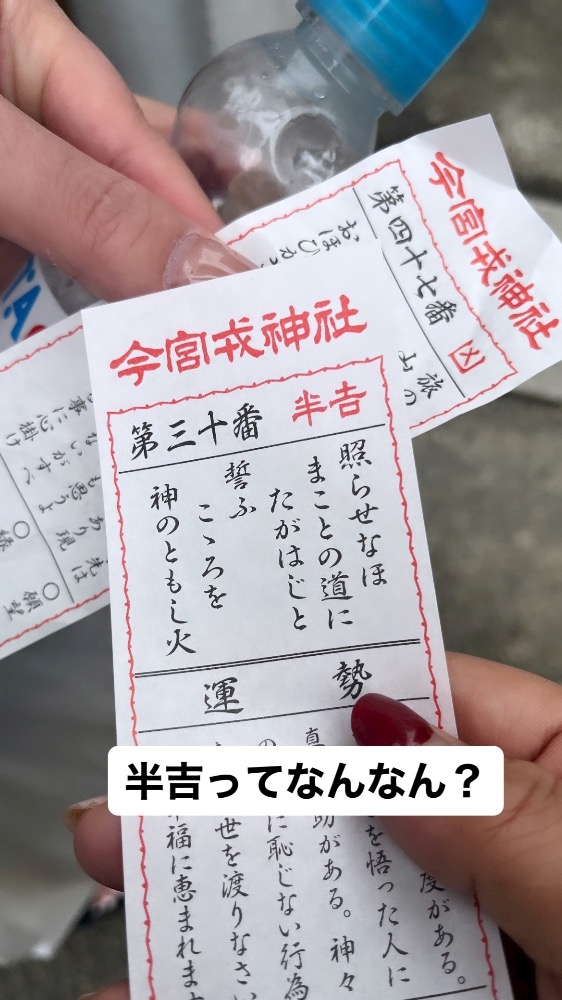 今宮戎神社
第三十番 半吉
照らせなほ
まことの道に
たがはじと
誓ふ
こゝろを
神のともし火
運勢
度がある。
を悟った人に
助がある。神々
に恥じない行為
世を渡りなさい
福に恵まれます
半吉ってなんなん？
今宮戎神社
第四十七番 凶
旅の
山の
おほひかつ
事に心掛け
○縁
○願望
TA